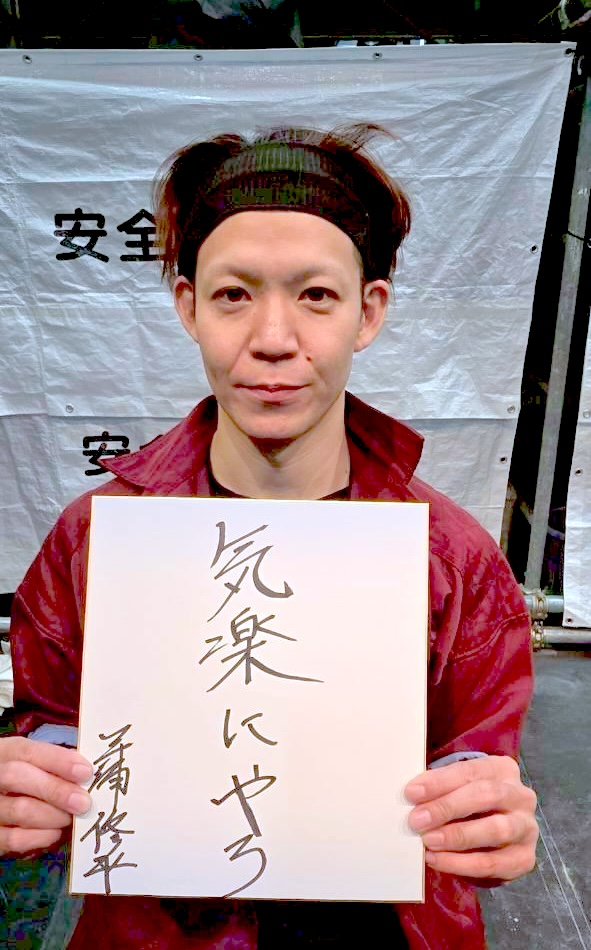 安全
安
気楽にやろ
蒲修平